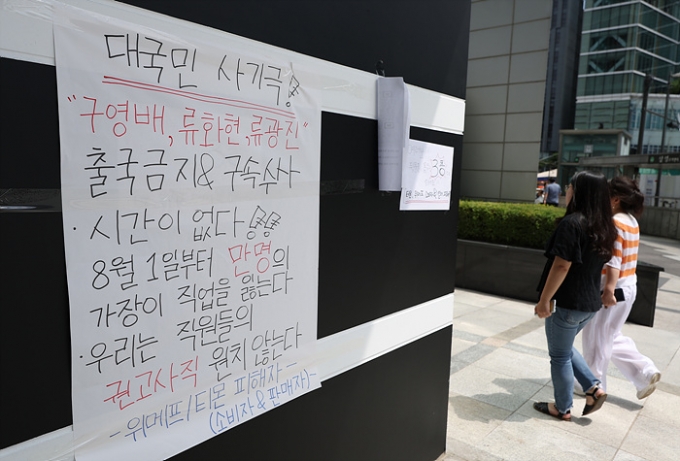 대국민 사기극
"구영배, 류화현, 류광진"
출국금지& 구속수사
· 시간이 없다
8월 1일부터 만명의
가장이 직업을 잃는다
· 우리는 직원들의
권고사직 원치 않는다
- 위메프/티몬 피해자 -
(소비자 & 판매자)
3층